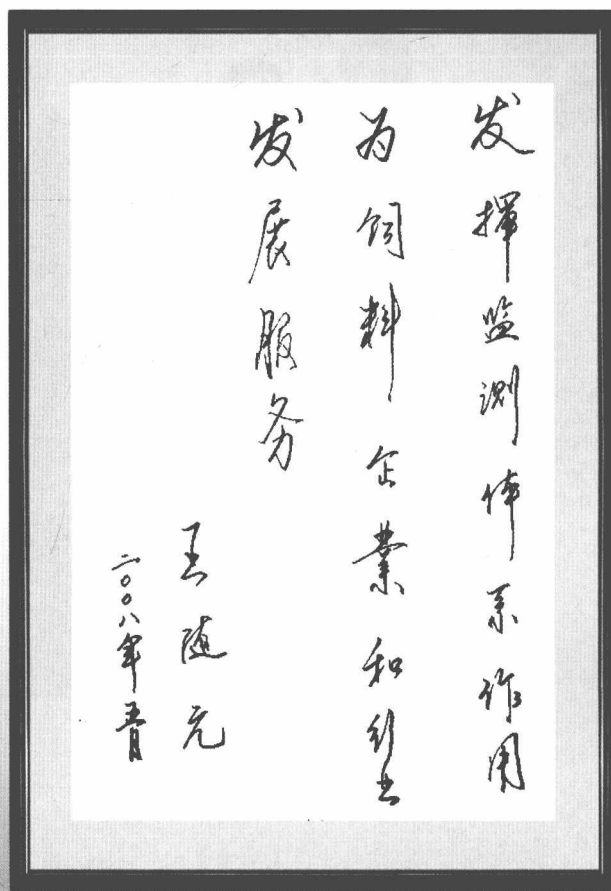 发揮监测体系作用
为饲料企業和行业
发展服务
王随元
二〇〇八年春月